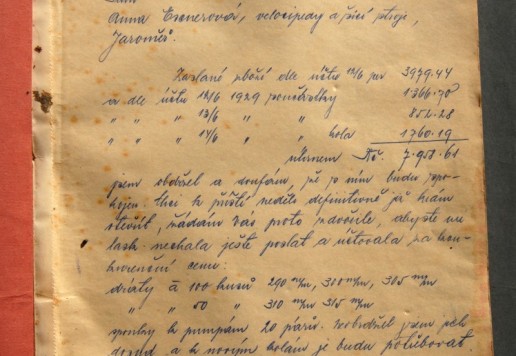 Anna Exnerová, velocipedy a šicí stroje,
Jaroměř.
Zaslané zboží dle účtu 12/6 per 3979.44
a dle účtu 12/6 1929 pneumatiky 1366.70
" " " 13/6 " " 852.28
" " " 14/6 " " kola 1760.19
úhrnem Kč. 7.958.61
jsem obdržel a doufám, že s ním budu spo-
kojen. Chci k příští neděli definitivně již krám
otevřít, žádám Vás proto zdvořile, abyste mi
lask. nechala ještě poslat a účtovala za kon-
kurenční cenu:
dráty á 100 kusů 290 m/m, 300 m/m, 305 m/m
" " 50 " 310 m/m 315 m/m
spojky k pumpám 20 párů. Neobdržel jsem
dosud a k novým kolám je budu potřebovat.